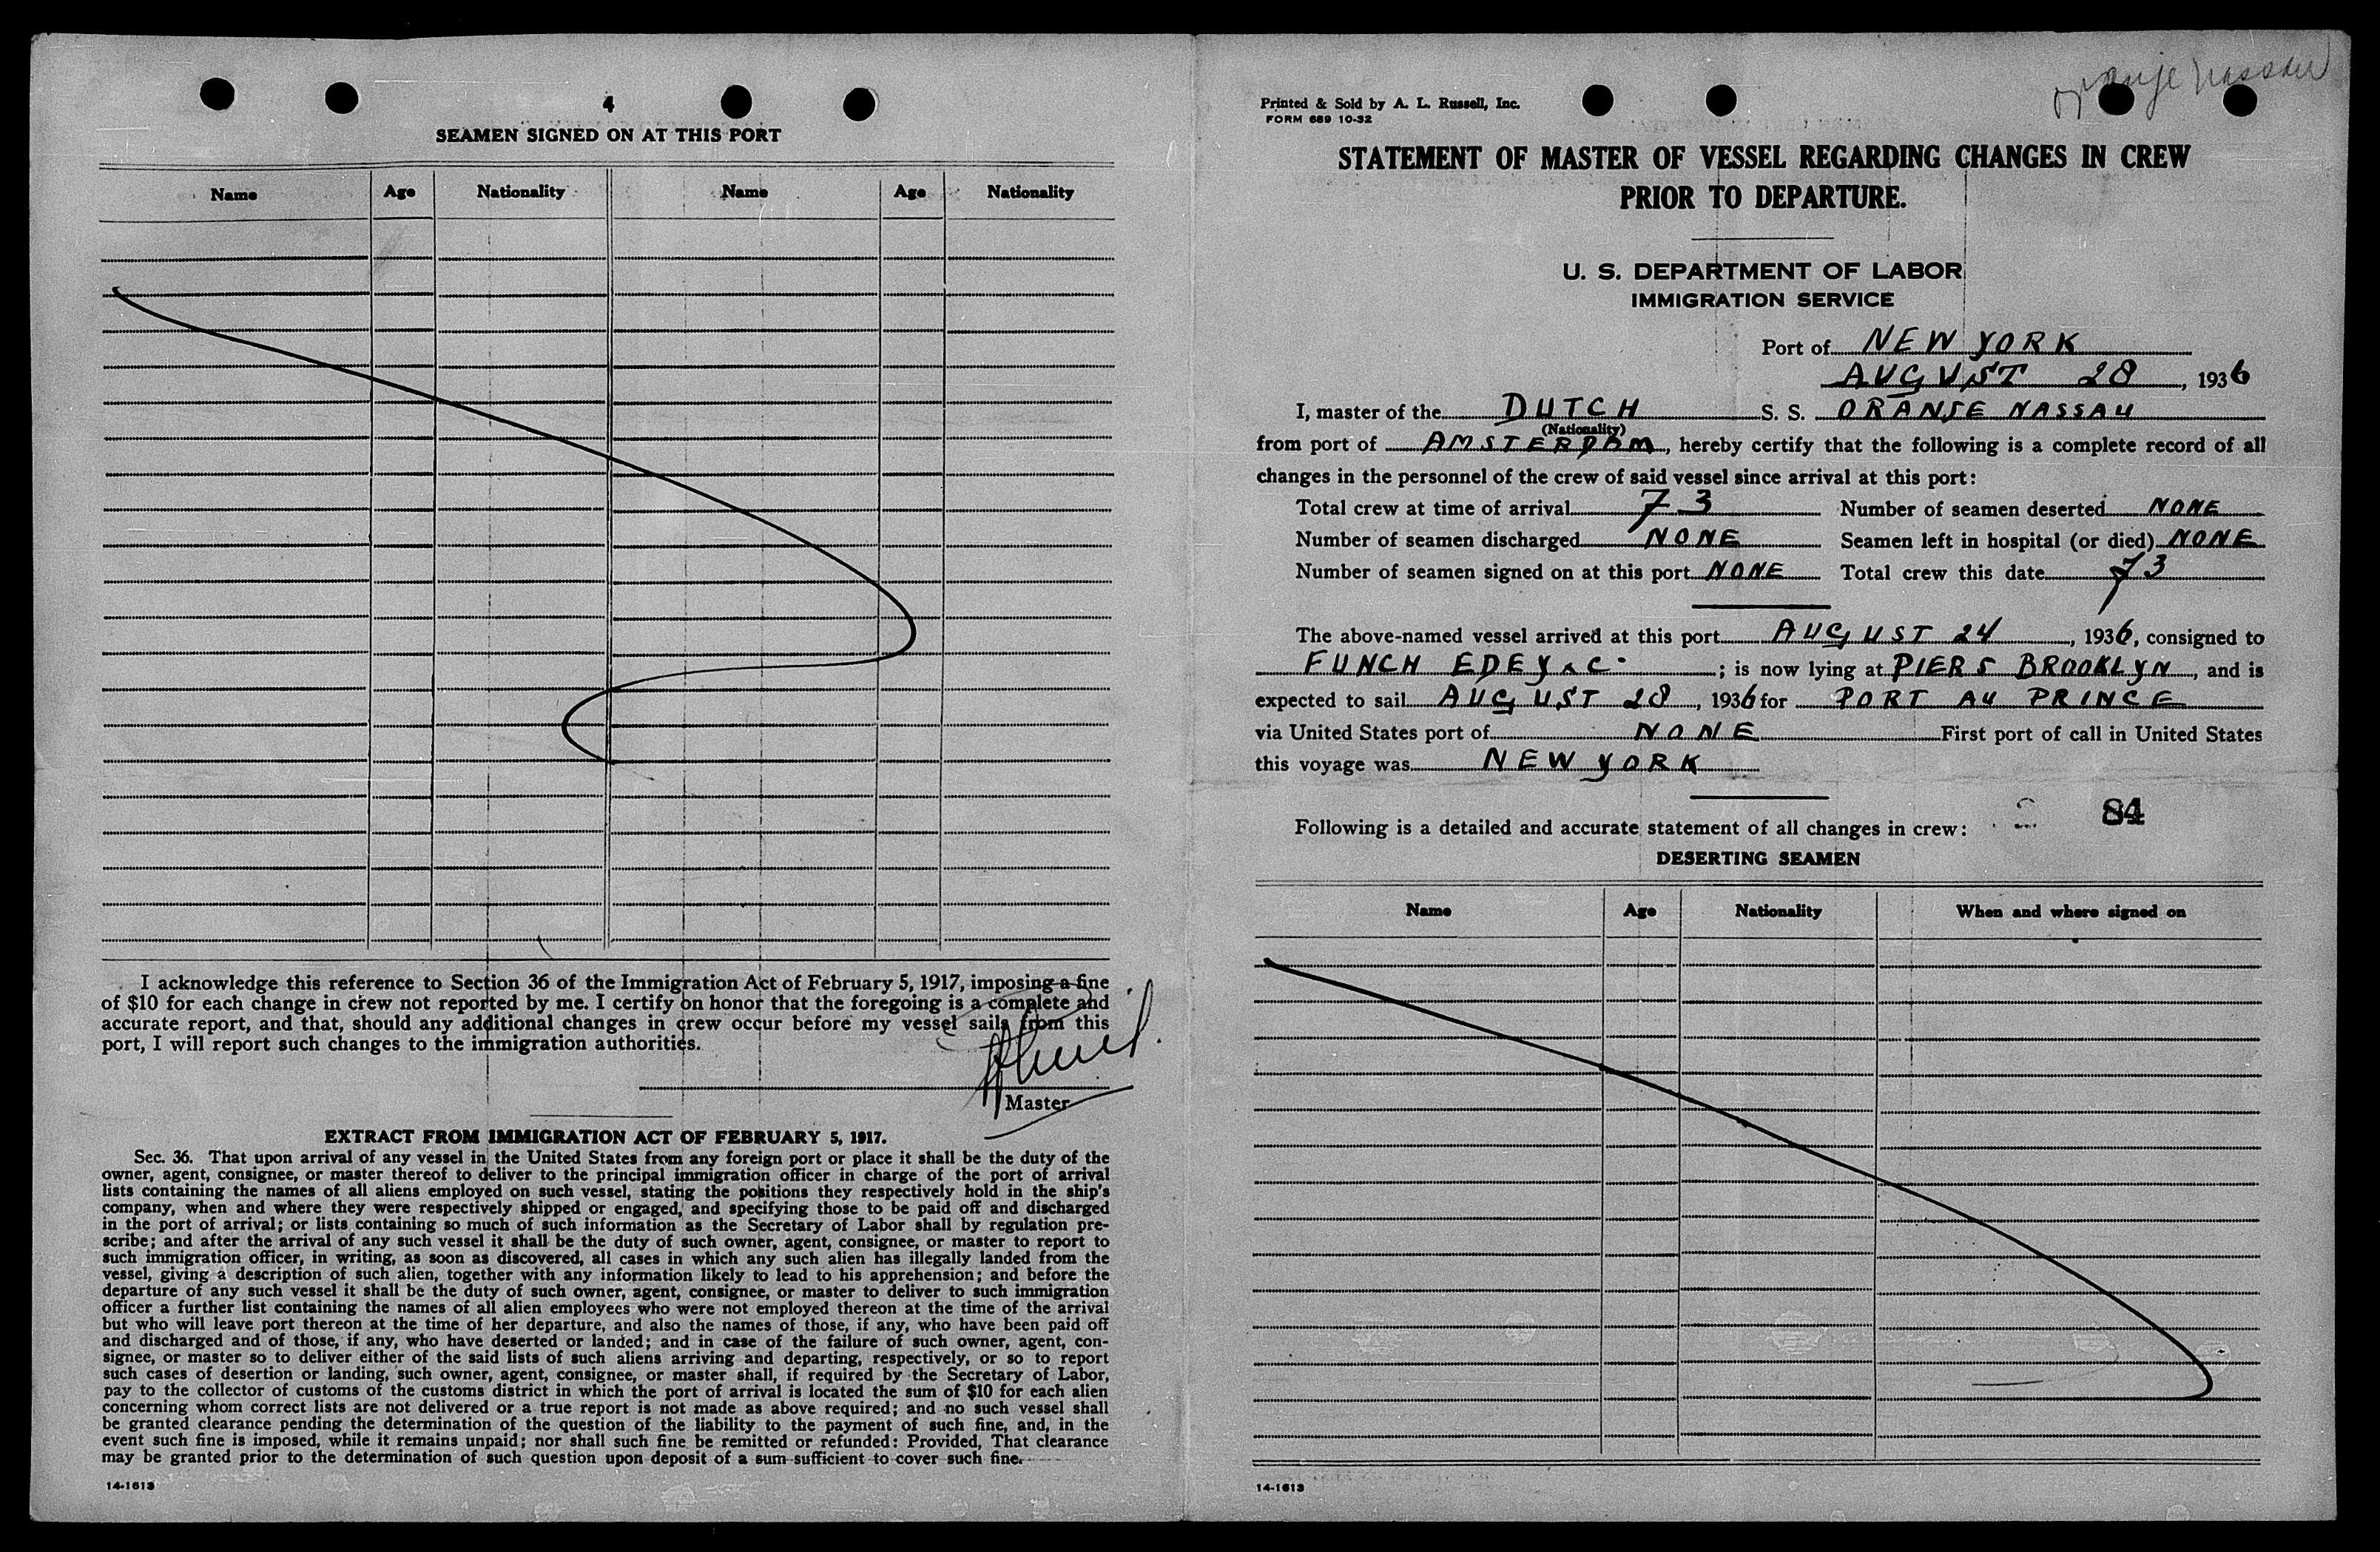 4
SEAMEN SIGNED ON AT THIS PORT
Name Age Nationality Name Age Nationality
I acknowledge this reference to Section 36 of the Immigration Act of February 5, 1917, imposing a fine
of $10 for each change in crew not reported by me. I certify on honor that the foregoing is a complete and
accurate report, and that, should any additional changes in crew occur before my vessel sails from this
port, I will report such changes to the immigration authorities.
Master
EXTRACT FROM IMMIGRATION ACT OF FEBRUARY 5, 1917.
Sec. 36. That upon arrival of any vessel in the United States from any foreign port or place it shall be the duty of the
owner, agent, consignee, or master thereof to deliver to the principal immigration officer in charge of the port of arrival
lists containing the names of all aliens employed on such vessel, stating the positions they respectively hold in the ship's
company, when and where they were respectively shipped or engaged, and specifying those to be paid off and discharged
in the port of arrival; or lists containing so much of such information as the Secretary of Labor shall by regulation pre-
scribe; and after the arrival of any such vessel it shall be the duty of such owner, agent, consignee, or master to report to
such immigration officer, in writing, as soon as discovered, all cases in which any such alien has illegally landed from the
vessel, giving a description of such alien, together with any information likely to lead to his apprehension; and before the
departure of any such vessel it shall be the duty of such owner, agent, consignee, or master to deliver to such immigration
officer a further list containing the names of all alien employees who were not employed thereon at the time of the arrival
but who will leave port thereon at the time of her departure, and also the names of those, if any, who have been paid off
and discharged and of those, if any, who have deserted or landed; and in case of the failure of such owner, agent, con-
signee, or master so to deliver either of the said lists of such aliens arriving and departing, respectively, or so to report
such cases of desertion or landing, such owner, agent, consignee, or master shall, if required by the Secretary of Labor,
pay to the collector of customs of the customs district in which the port of arrival is located the sum of $10 for each alien
concerning whom correct lists are not delivered or a true report is not made as above required; and no such vessel shall
be granted clearance pending the determination of the question of the liability to the payment of such fine, and, in the
event such fine is imposed, while it remains unpaid; nor shall such fine be remitted or refunded: Provided, That clearance
may be granted prior to the determination of such question upon deposit of a sum sufficient to cover such fine.
14-1613
oranje nassau
Printed & Sold by A. L. Russell, Inc.
FORM 689 10-32
STATEMENT OF MASTER OF VESSEL REGARDING CHANGES IN CREW
PRIOR TO DEPARTURE.
U. S. DEPARTMENT OF LABOR
IMMIGRATION SERVICE
Port of NEW YORK
AUGUST 28, 1936
I, master of the DUTCH S. S. ORANJE NASSAU
(Nationality)
from port of AMSTERDAM, hereby certify that the following is a complete record of all
changes in the personnel of the crew of said vessel since arrival at this port:
Total crew at time of arrival 73 Number of seamen deserted NONE
Number of seamen discharged NONE Seamen left in hospital (or died) NONE
Number of seamen signed on at this port NONE Total crew this date 73
The above-named vessel arrived at this port AUGUST 24, 1936, consigned to
FUNCH EDEY & C°; is now lying at PIER 5 BROOKLYN, and is
expected to sail AUGUST 28, 1936 for PORT AU PRINCE
via United States port of NONE First port of call in United States
this voyage was NEW YORK
84
Following is a detailed and accurate statement of all changes in crew:
DESERTING SEAMEN
Name Age Nationality When and where signed on
14-1613